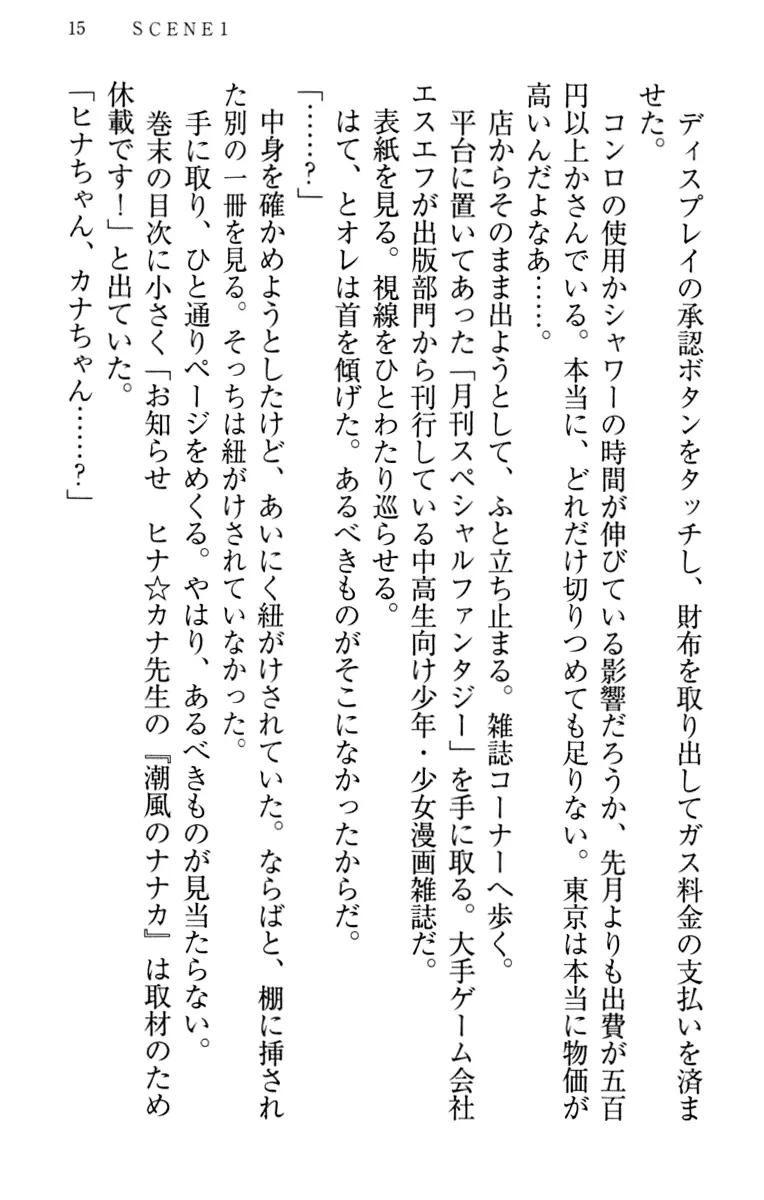 15 SCENE1
ディスプレイの承認ボタンをタッチし、財布を取り出してガス料金の支払いを済ま
せた。
コンロの使用かシャワーの時間が伸びている影響だろうか、先月よりも出費が五百
円以上かさんでいる。本当に、どれだけ切りつめても足りない。東京は本当に物価が
高いんだよなあ……。
店からそのまま出ようとして、ふと立ち止まる。雑誌コーナーへ歩く。
平台に置いてあった「月刊スペシャルファンタジー」を手に取る。大手ゲーム会社
エスエフが出版部門から刊行している中高生向け少年・少女漫画雑誌だ。
表紙を見る。視線をひとわたり巡らせる。
はて、とオレは首を傾げた。あるべきものがそこになかったからだ。
「……?」
中身を確かめようとしたけど、あいにく紐がけされていた。ならばと、棚に挿され
た別の一冊を見る。そっちは紐がけされていなかった。
手に取り、ひと通りページをめくる。やはり、あるべきものが見当たらない。
巻末の目次に小さく「お知らせ　ヒナ☆カナ先生の『潮風のナナカ』は取材のため
休載です!」と出ていた。
「ヒナちゃん、カナちゃん……?」